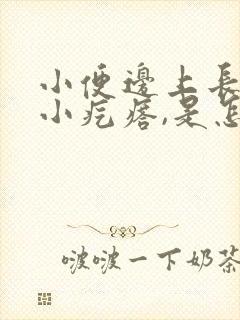 小便邊上長
小疙瘩,是怎
啵啵一下奶茶